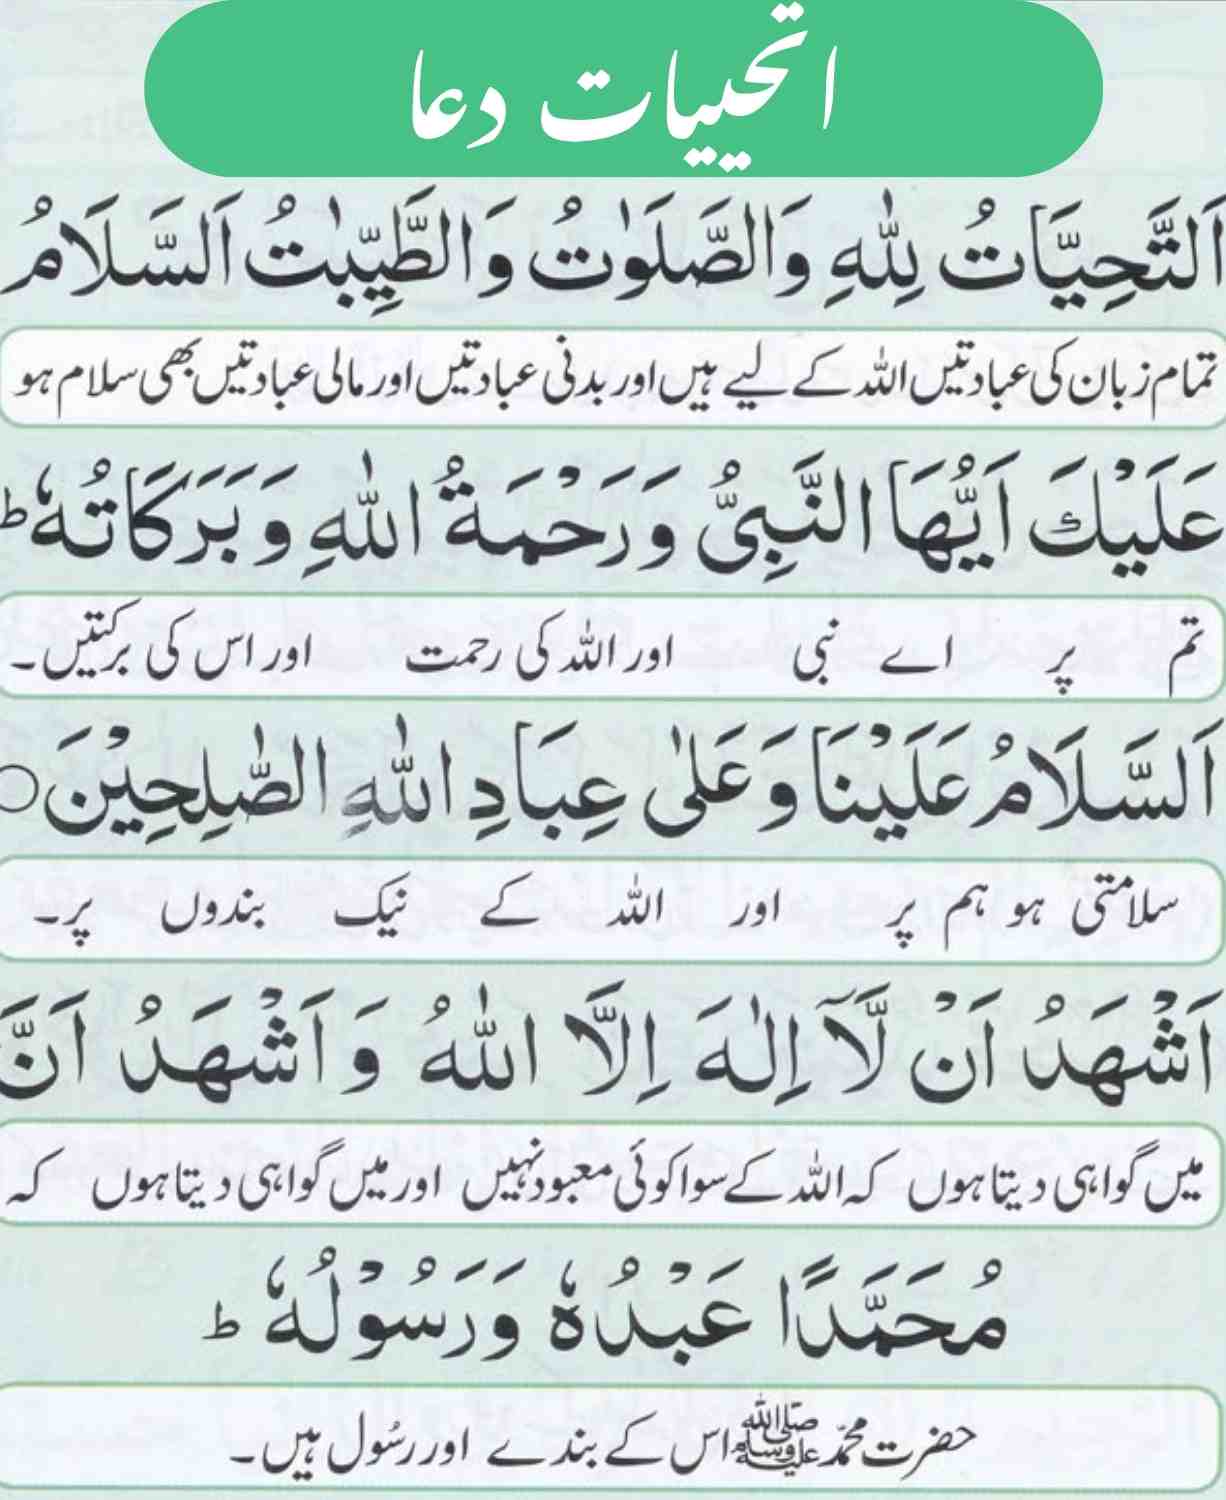 اتحییات دعا
اَلتَّحِيَّاتُ لِلّٰهِ وَالصَّلَوٰتُ وَالطَّيِّبٰتُ اَلسَّلَامُ
تمام زبان کی عبادتیں اللہ کے لیے ہیں اور بدنی عبادتیں اور مالی عبادتیں بھی سلام ہو
عَلَيْكَ اَيُّهَا النَّبِىُّ وَرَحْمَةُ اللّٰهِ وَبَرَكَاتُهٗ ؕ
تم پر اے نبی اور اللہ کی رحمت اور اس کی برکتیں۔
اَلسَّلَامُ عَلَيْنَا وَعَلٰى عِبَادِ اللّٰهِ الصّٰلِحِيْنَ ○
سلامتی ہو ہم پر اور اللہ کے نیک بندوں پر۔
اَشْهَدُ اَنْ لَّآ اِلٰهَ اِلَّا اللّٰهُ وَ اَشْهَدُ اَنَّ
میں گواہی دیتا ہوں کہ اللہ کے سوا کوئی معبود نہیں اور میں گواہی دیتا ہوں کہ
مُحَمَّدًا عَبْدُهٗ وَرَسُوْلُهٗ ؕ
حضرت محمّد ﷺ اس کے بندے اور رسُول ہیں۔